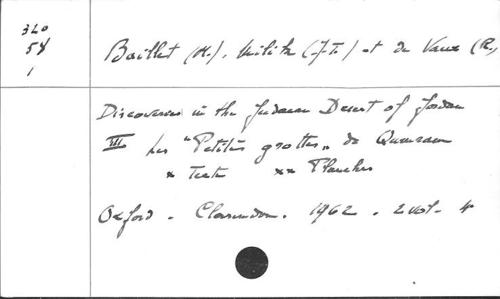 340
58
1
Baillet (M.), Milik (J.T.) et de Vaux (R.)
Discoveries in the Judaean Desert of Jordan
III Les "Petites grottes" de Qumran
* Texte ** Planches
Oxford - Clarendon. 1962. 2 vol. 4